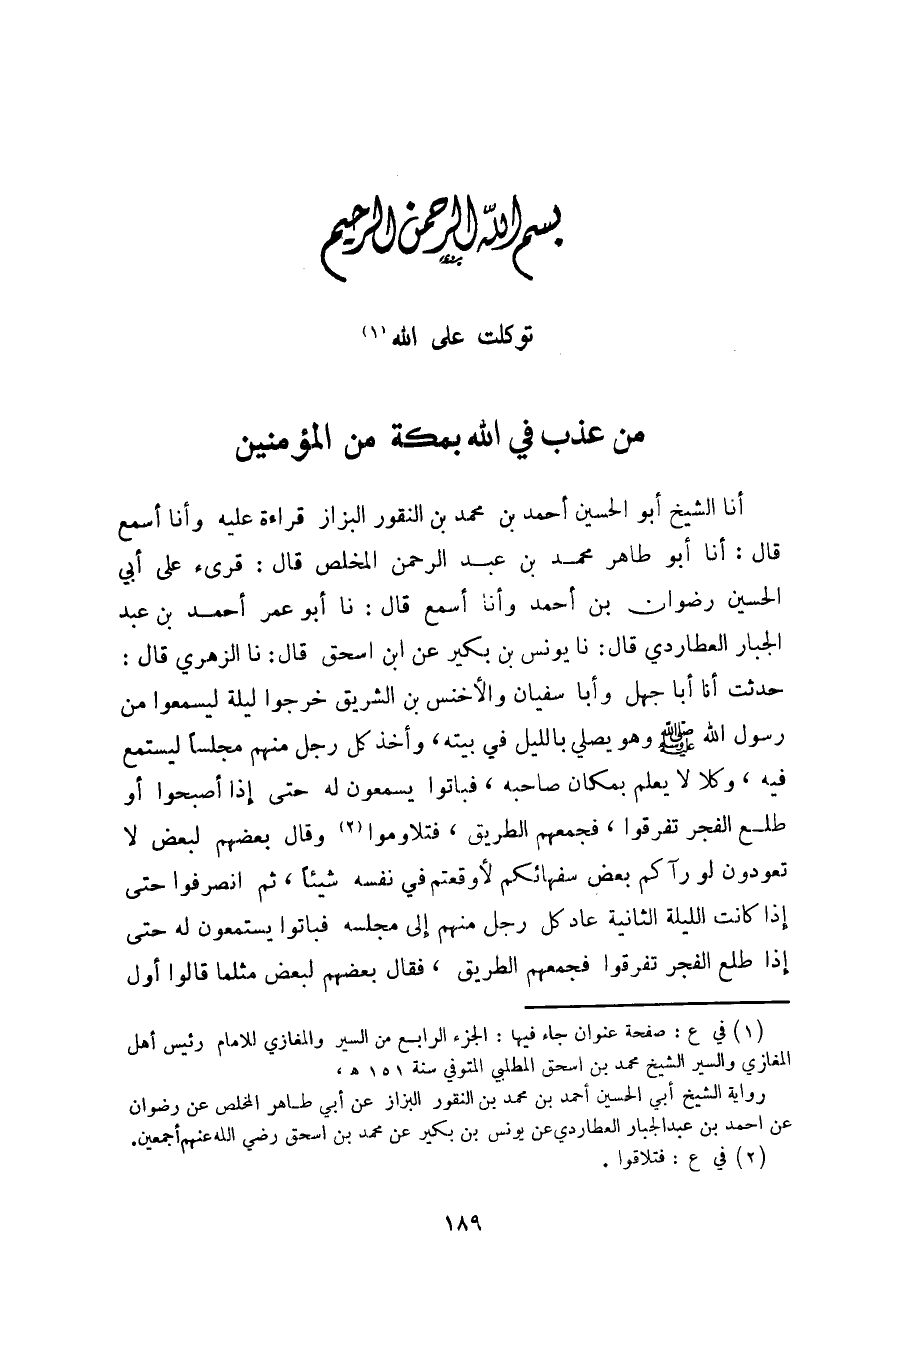 بسم الله الرحمن الرحيم
توكلت على الله (١)
من عذب في الله بمكة من المؤمنين
أنا الشيخ أبو الحسين أحمد بن محمد بن النقور البزاز قراءة عليه وأنا أسمع
قال : أنا أبو طاهر محمد بن عبد الرحمن المخلص قال : قرىء على أبي
الحسين رضوان بن أحمد وأنا أسمع قال : نا أبو عمر أحمد بن عبد
الجبار العطاردي قال : نا يونس بن بكير عن ابن اسحق قال : نا الزهري قال :
حدثت أنا أبا جهل وأبا سفيان والأخنس بن الشريق خرجوا ليلة ليسمعوا من
رسول الله ﷺ وهو يصلي بالليل في بيته ، وأخذ كل رجل منهم مجلساً ليستمع
فيه ، وكلا لا يعلم بمكان صاحبه ، فباتوا يسمعون له حتى إذا أصبحوا أو
طلع الفجر تفرقوا ، فجمعهم الطريق ، فتلاوموا (٢) وقال بعضهم لبعض لا
تعودون لو رآكم بعض سفهائكم لأوقعتم في نفسه شيئاً ، ثم انصرفوا حتى
إذا كانت الليلة الثانية عاد كل رجل منهم إلى مجلسه فباتوا يستمعون له حتى
إذا طلع الفجر تفرقوا فجمعهم الطريق ، فقال بعضهم لبعض مثلما قالوا أول
(١) في ع : صفحة عنوان جاء فيها : الجزء الرابع من السير والمغازي للامام رئيس أهل
المغازي والسير الشيخ محمد بن اسحق المطلبي المتوفي سنة ١٥١ ه ،
رواية الشيخ أبي الحسين أحمد بن محمد بن النقور البزاز عن أبي طاهر المخلص عن رضوان
عن احمد بن عبدالجبار العطاردي عن يونس بن بكير عن محمد بن اسحق رضي الله عنهم أجمعين.
(٢) في ع : فتلاقوا .
١٨٩